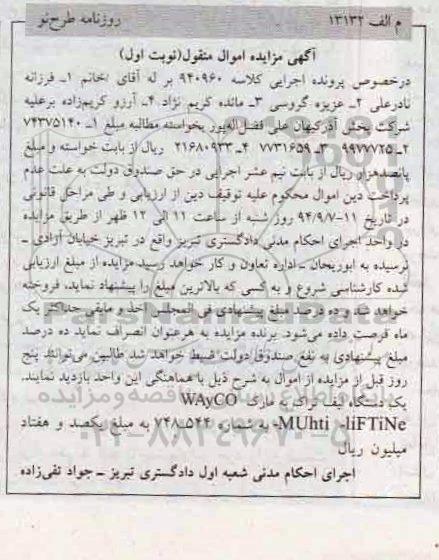 م الف ۱۳۱۳۲ روزنامه طرح‌نو
آگهی مزایده اموال منقول(نوبت اول)
درخصوص پرونده اجرایی کلاسه ۹۴۰۹۶۰ بر له آقای /خانم ۱ـ فرزانه
نادرعلی ۲ـ عزیزه گروسی ۳ـ مائده کریم نژاد ۴ـ آرزو کریم‌زاده برعلیه
شرکت پخش آذرکیهان علی فضل‌اله‌پور بخواسته مطالبه مبلغ ۱ـ ۷۴۳۷۵۱۴۰
۲ـ ۹۹۷۷۷۲۵ ۳ـ ۷۷۳۱۶۵۹ ۴ـ ۲۱۶۸۰۹۳۳ ریال از بابت خواسته و مبلغ
پانصدهزار ریال از بابت نیم عشر اجرایی در حق صندوق دولت به علت عدم
پرداخت دین اموال محکوم علیه توقیف دین از ارزیابی و طی مراحل قانونی
در تاریخ ۱۱-۹۴/۹/۷ روز شنبه از ساعت ۱۱ الی ۱۲ ظهر از طریق مزایده
در واحد اجرای احکام مدنی دادگستری تبریز واقع در تبریز خیابان آزادی ـ
نرسیده به ابوریحان ـ اداره تعاون و کار خواهد رسید مزایده از مبلغ ارزیابی
شده کارشناسی شروع و به کسی که بالاترین مبلغ را پیشنهاد نماید، فروخته
خواهد شد و ده درصد مبلغ پیشنهادی فی المجلس اخذ و مابقی حداکثر یک
ماه فرصت داده می‌شود. برنده مزایده به هرعنوان انصراف نماید ده درصد
مبلغ پیشنهادی به نفع صندوق دولت ضبط خواهد شد طالبین می‌توانند پنج
روز قبل از مزایده از اموال به شرح ذیل با هماهنگی این واحد بازدید نمایند.
یک دستگاه لیف تراک به مارک WAyCO
MUhti -liFTiNe- به شماره ۵۴۴ـ۷۴۸ به مبلغ یکصد و هفتاد
میلیون ریال
اجرای احکام مدنی شعبه اول دادگستری تبریز ـ جواد تقی‌زاده
۰۲۱-۸۸۳۴۹۶۷۰-۵